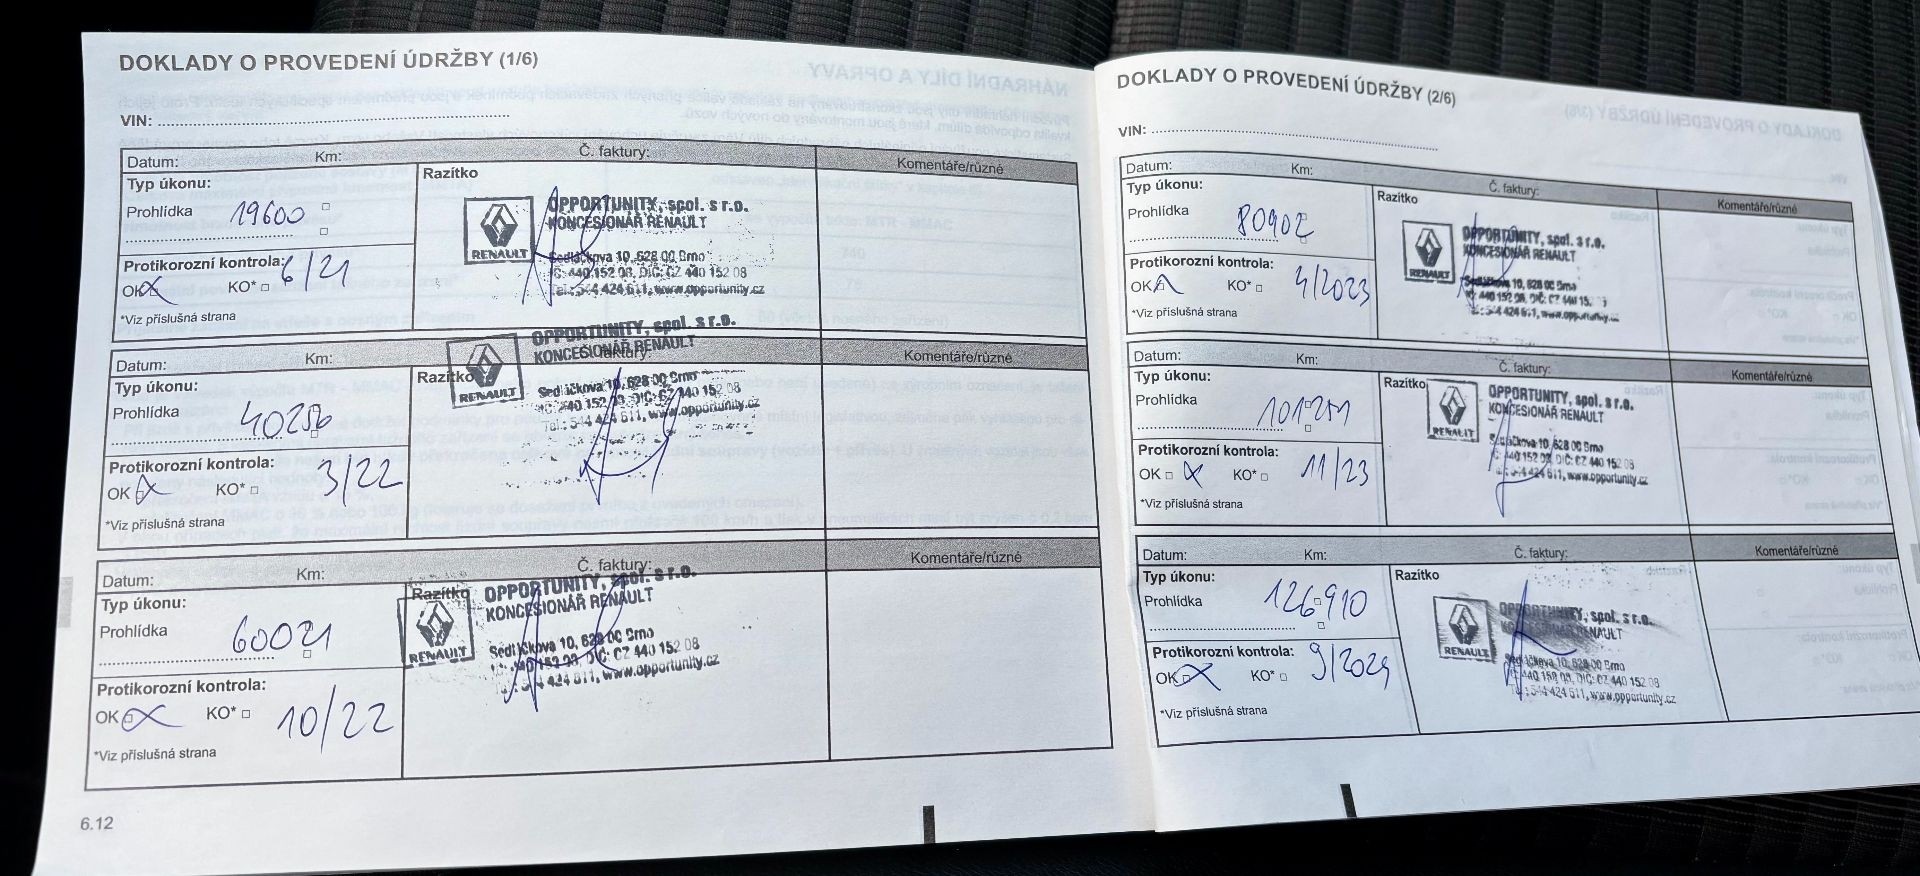 DOKLADY O PROVEDENÍ ÚDRŽBY (1/6)
VIN:
Datum: Km: Č. faktury: Komentáře/různé
Typ úkonu:
Prohlídka 19600
Protikorozní kontrola: 6/21
OK KO*
*Viz příslušná strana
Razítko
RENAULT
OPPORTUNITY, spol. s r.o.
KONCESIONÁŘ RENAULT
Sedláčkova 10, 628 00 Brno
IČ: 440 152 08, DIČ: CZ 440 152 08
Tel.: 544 424 611, www.opportunity.cz
Datum: Km: faktury: Komentáře/různé
Typ úkonu:
Prohlídka 40256
Protikorozní kontrola:
OK KO* 3/22
*Viz příslušná strana
Razítko
RENAULT
OPPORTUNITY, spol. s r.o.
KONCESIONÁŘ RENAULT
Sedláčkova 10, 628 00 Brno
IČ: 440 152 08, DIČ: CZ 440 152 08
Tel.: 544 424 611, www.opportunity.cz
Datum: Km: Č. faktury: Komentáře/různé
Typ úkonu:
Prohlídka 60021
Protikorozní kontrola:
OK KO* 10/22
*Viz příslušná strana
Razítko
RENAULT
OPPORTUNITY, spol. s r.o.
KONCESIONÁŘ RENAULT
Sedláčkova 10, 628 00 Brno
440 152 08, DIČ: CZ 440 152 08
544 424 611, www.opportunity.cz
6.12
DOKLADY O PROVEDENÍ ÚDRŽBY (2/6)
VIN:
Datum: Km: Č. faktury: Komentáře/různé
Typ úkonu:
Prohlídka 80902
Protikorozní kontrola:
OK KO* 4/2023
*Viz příslušná strana
Razítko
RENAULT
OPPORTUNITY, spol. s r.o.
KONCESIONÁŘ RENAULT
Sedláčkova 10, 628 00 Brno
440 152 08, DIČ: CZ 440 15
544 424 611, www.opportunity.cz
Datum: Km: Č. faktury: Komentáře/různé
Typ úkonu:
Prohlídka 101251
Protikorozní kontrola:
OK KO* 11/23
*Viz příslušná strana
Razítko
RENAULT
OPPORTUNITY, spol. s r.o.
KONCESIONÁŘ RENAULT
Sedláčkova 10, 628 00 Brno
440 152 08, DIČ: CZ 440 152 08
544 424 611, www.opportunity.cz
Datum: Km: Č. faktury: Komentáře/různé
Typ úkonu:
Prohlídka 126910
Protikorozní kontrola:
OK KO* 9/2024
*Viz příslušná strana
Razítko
RENAULT
OPPORTUNITY, spol. s r.o.
KONCESIONÁŘ RENAULT
Sedláčkova 10, 628 00 Brno
440 152 08, DIČ: CZ 440 152 08
544 424 611, www.opportunity.cz